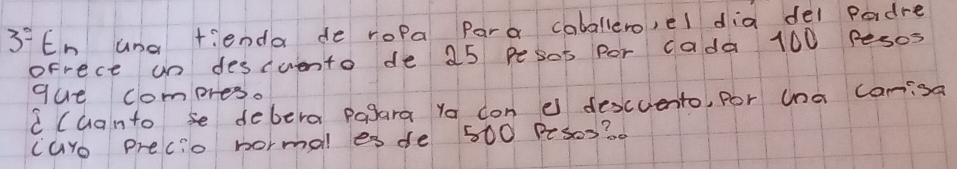 3º En una tienda de ropa Para caballero, el dia del Padre
ofrece un descuento de 25 Pesos Por cada 100 Pesos
que compres.
¿Cuanto se debera Pagara Ya con el descuento, Por una camisa
cuyo Precio normal es de 500 Pesos?